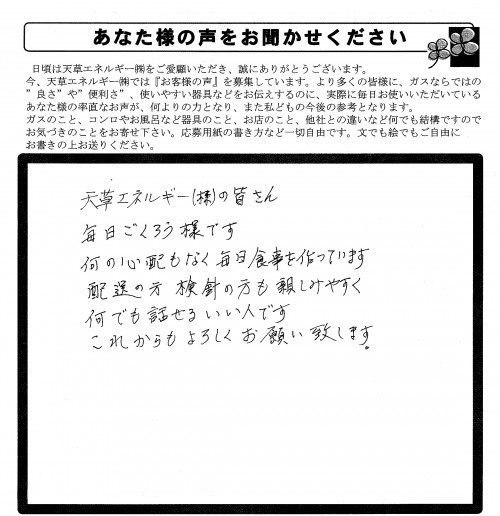 あなた様の声をお聞かせください
日頃は天草エネルギー㈱をご愛顧いただき、誠にありがとうございます。
今、天草エネルギー㈱では『お客様の声』を募集しています。より多くの皆様に、ガスならではの
”良さ”や”便利さ”、使いやすい器具などをお伝えするのに、実際に毎日お使いいただいている
あなた様の率直なお声が、何よりの力となり、また私どもの今後の参考となります。
ガスのこと、コンロやお風呂など器具のこと、お店のこと、他社との違いなど何でも結構ですので
お気づきのことをお寄せ下さい。応募用紙の書き方など一切自由です。文でも絵でもご自由に
お書きの上お送りください。
天草エネルギー(様)の皆さん
毎日ごくろう様です
何の心配もなく毎日食事を作っています
配送の方 検針の方も親しみやすく
何でも話せるいい人です
これからもよろしくお願い致します。